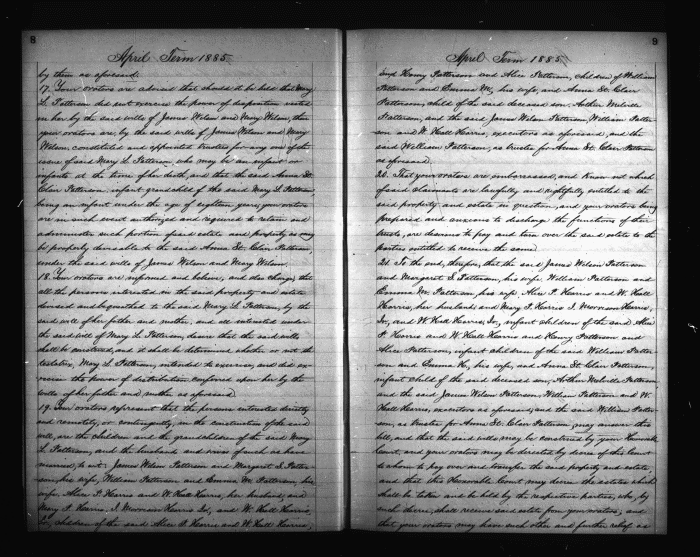 8
April Term 1885
by them as aforesaid.
17. Your orators are advised that should it be held that Mary
L. Patterson did not exercise the power of disposition vested
in her by the said wills of James Wilson and Mary Wilson, then
your orators are, by the said wills of James Wilson and Mary
Wilson, constituted and appointed trustees for any one of the
issue of said Mary L. Patterson, who may be an infant or
infants at the time of her death, and that the said Anne St.
Clair Patterson, infant grandchild of the said Mary L. Patterson,
being an infant under the age of eighteen years, your orators
are in such event authorized and required to retain and
administer such portion of said estate and property as may
be properly demisable to the said Anne St. Clair Patterson,
under the said wills of James Wilson and Mary Wilson.
18. Your orators are informed and believe, and also charge, that
all the persons interested in the said property and estate
devised and bequeathed to the said Mary L. Patterson, by the
said will of her father and mother, and all interested under
the said will of Mary L. Patterson, desire that the said wills
shall be construed, and it shall be determined whether or not the
testatrix, Mary L. Patterson, intended to exercise, and did ex-
ercise the power of distribution conferred upon her by the
wills of her father and mother as aforesaid.
19. Your orators represent that the persons interested directly
and remotely, or contingently, in the construction of the said
will, are the children and the grandchildren of the said Mary
L. Patterson, and the husbands and wives of such as have
married, to wit: James Wilson Patterson and Margaret S. Patter-
son, his wife, William Patterson and Emma M. Patterson, his
wife, Alice P. Harris and W. Hall Harris, her husband, and
Mary P. Harris, J. Morrison Harris, Jr., and W. Hall Harris,
Jr., children of the said Alice P. Harris and W. Hall Harris,
9
April Term 1885
and Henry Patterson and Alice Patterson, children of William
Patterson and Emma M., his wife, and Anne St. Clair
Patterson, child of the said deceased son Arthur Melville
Patterson, and the said James Wilson Patterson, William Patter-
son and W. Hall Harris, executors as aforesaid, and the
said William Patterson, as trustee for Anne St. Clair Patterson
as aforesaid.
20. That your orators are embarrassed, and know not which
of said claimants are lawfully and rightfully entitled to the
said property and estate in question, and your orators being
prepared and anxious to discharge the functions of their
trusts, are desirous to pay and turn over the said estate to the
parties entitled to receive the same.
21. To the end, therefore, that the said James Wilson Patterson
and Margaret S. Patterson, his wife, William Patterson and
Emma M. Patterson, his wife, Alice P. Harris and W. Hall
Harris, her husband and Mary P. Harris, J. Morrison Harris,
Jr., and W. Hall Harris, Jr., infant children of the said Alice
P. Harris and W. Hall Harris and Henry Patterson and
Alice Patterson, infant children of the said William Patter-
son and Emma M., his wife, and Anne St. Clair Patterson,
infant child of the said deceased son, Arthur Melville Patterson,
and the said James Wilson Patterson, William Patterson and W.
Hall Harris, executors as aforesaid, and the said William Patter-
son, as trustee for Anne St. Clair Patterson, may answer this
bill, and that the said wills may be construed by your Honorable
Court, and your orators may be directed by decree of this Court
to whom to pay over and transfer the said property and estate,
and that this Honorable Court may decree the estates which
shall be taken and be held by the respective parties, who, by
such decree, shall receive said estate from your orators; and
that your orators may have such other and further relief as